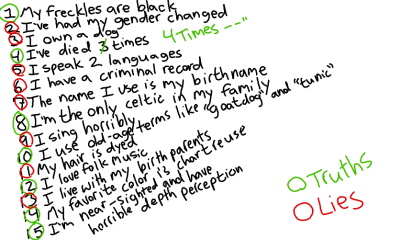 1 My freckles are black
2 I've had my gender changed
3 I own a dog
4 I've died 3 times 4 Times --"
5 I speak 2 languages
6 I have a criminal record
7 The name I use is my birth name
8 I'm the only celtic in my family
9 I sing horribly
10 I use old-age terms like "goatdog" and "tunic"
11 My hair is dyed
12 I love folk music
13 I live with my birth parents
14 My favorite color is chartreuse
15 I'm near-sighted and have
horrible depth perception
O Truths
O Lies